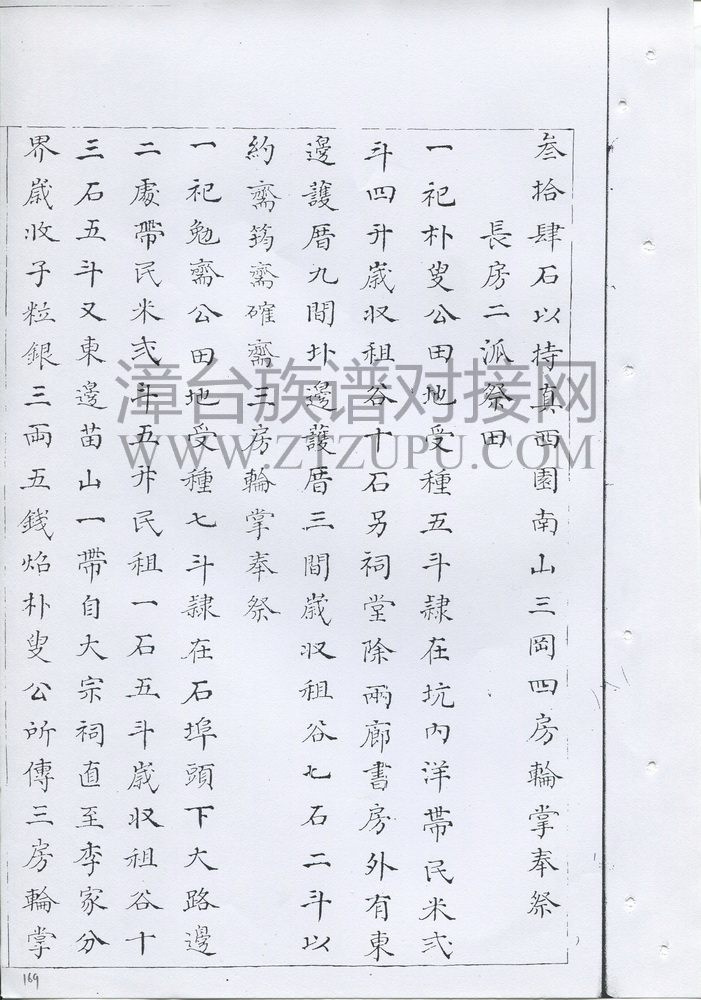 叁拾肆石以持真西園南山三岡四房輪掌奉祭
長房二派祭田
一祀朴叟公田地受種五斗隷在坑內洋帶民米弍
斗四升歲收租谷十石另祠堂除兩廊書房外有東
邊護厝九間圤邊護厝三間歲收租谷七石二斗以
約齋筠齋確齋三房輪掌奉祭
一祀勉齋公田地受種七斗隷在石埠頭下大路邊
二處帶民米弍斗五升民租一石五斗歲收租谷十
三石五斗又東邊苗山一帶自大宗祠直至李家分
界歲收子粒銀三両五錢焰朴叟公所傳三房輪掌
漳台族谱对接网
WWW.ZTZUPU.COM
169